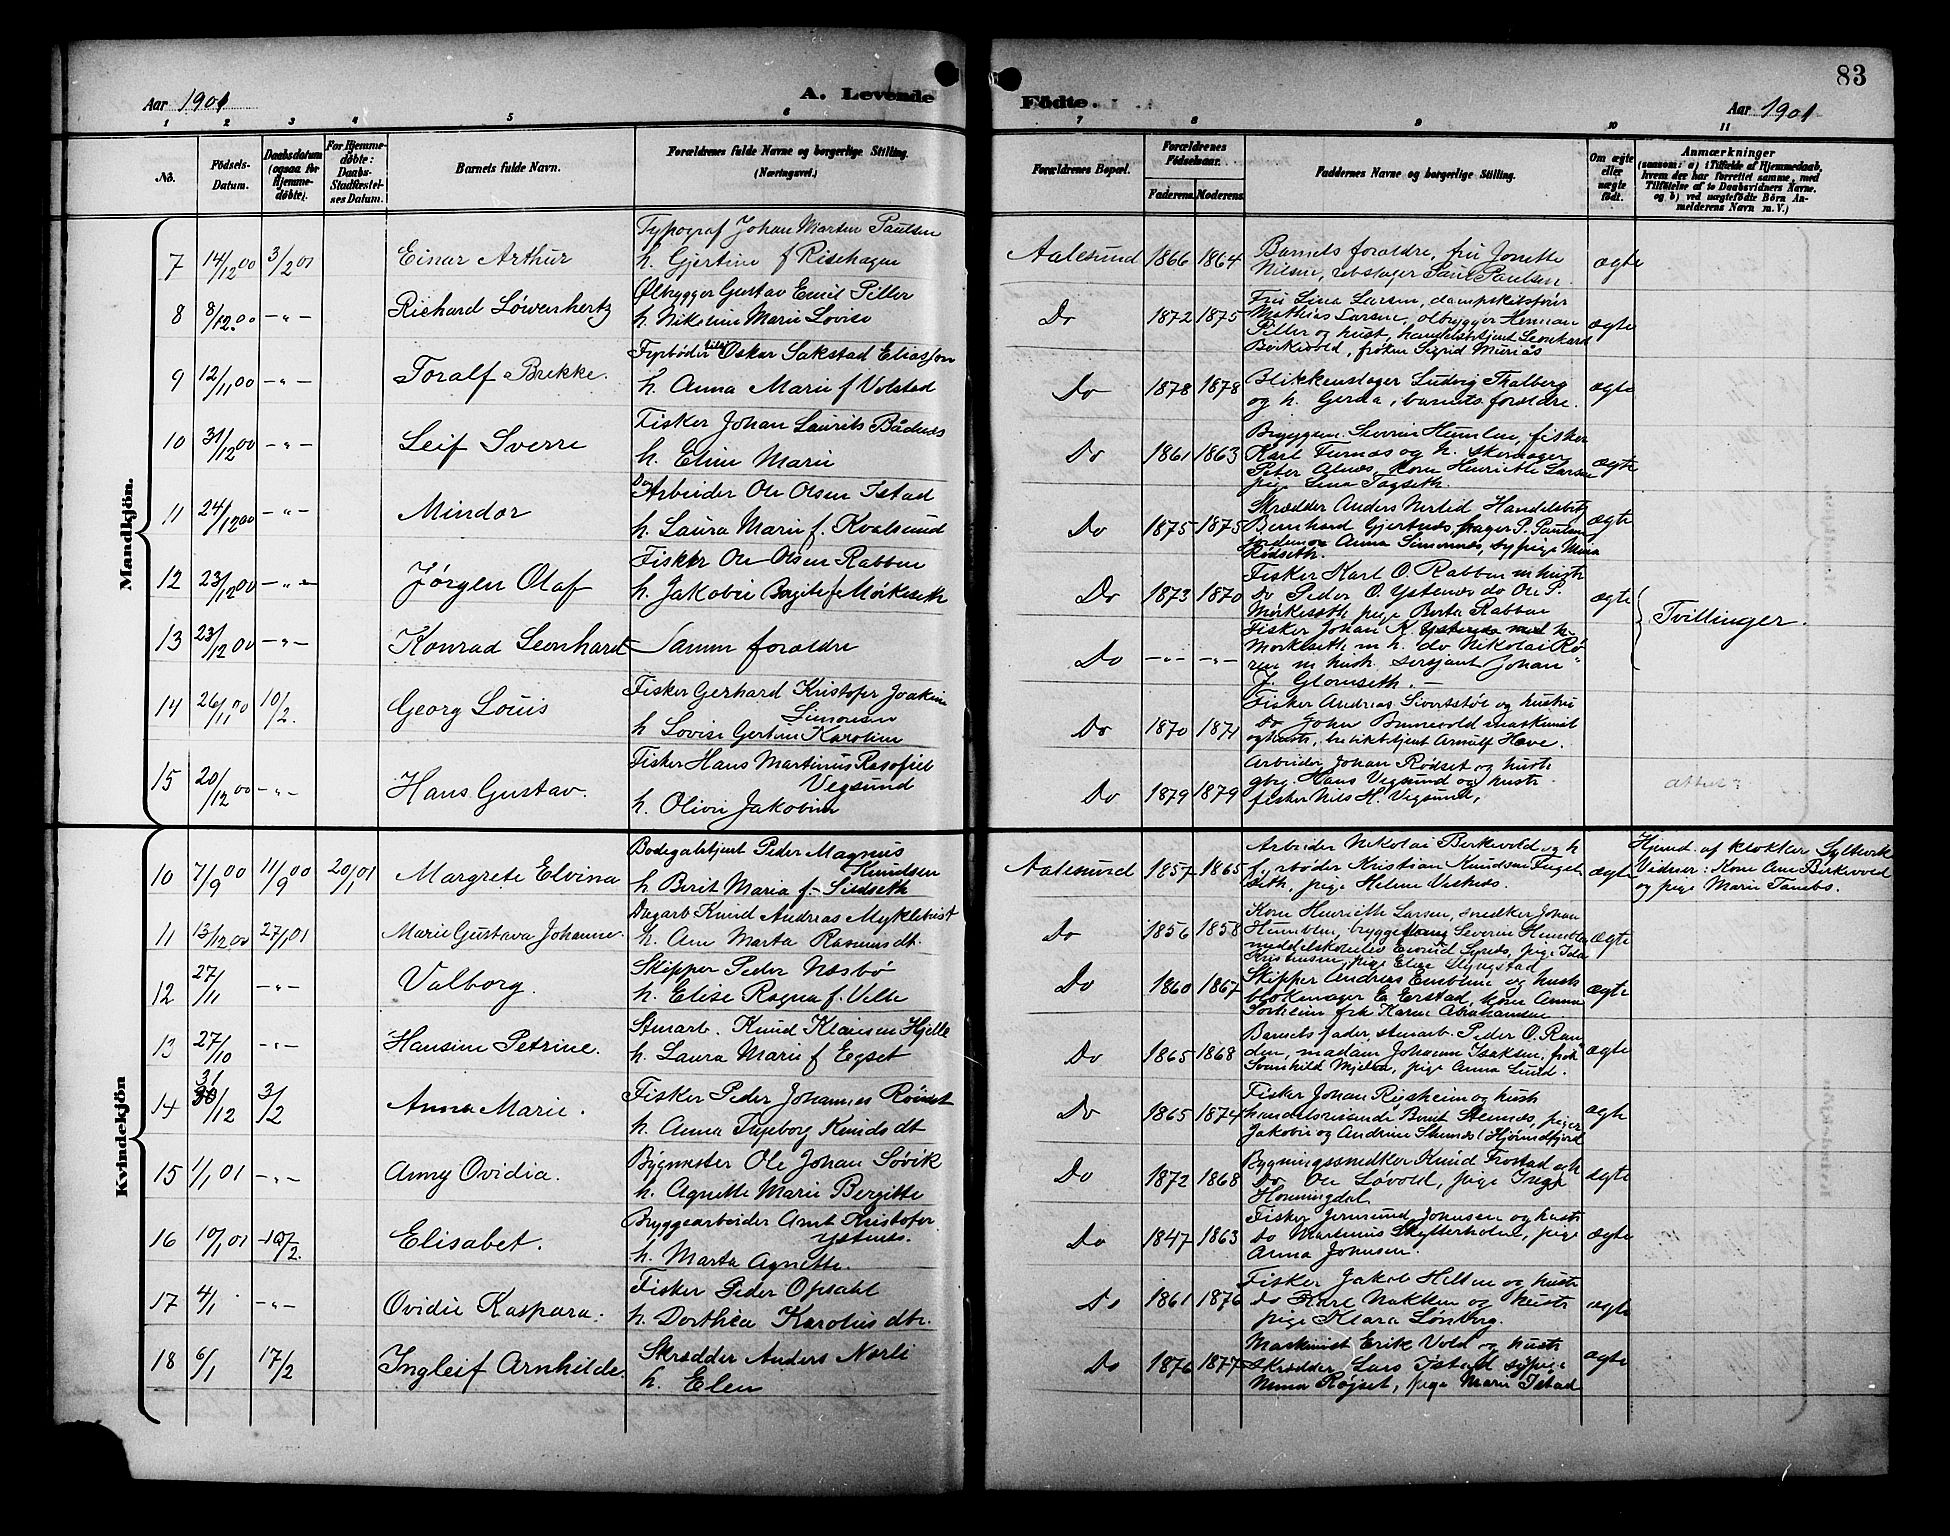 83
Aar 1901
A. Levende
Födte.
Aar 1901
1 2 3 4 5 6 7 8 9 10 11
No. Födsels-Datum. Daabsdatum (ogsaa for Hjemmedøbte). For Hjemmedøbte: Daabs-Stadfæstelses Datum. Barnets fulde Navn. Forældrenes fulde Navne og borgerlige Stilling. (Næringsvei.) Forældrenes Bopæl. Forældrenes Födselsaar. Faderens. Moderens. Faddernes Navne og borgerlige Stilling. Om ægte eller uægte født. Anmærkninger (saasom: a) i Tilfælde af Hjemmedaab, hvem der har forrettet samme, med Tilföielse af to Daabsvidners Navne, og b) ved uægtefödte Börn Anmelderens Navn m. V.)
Mandkjön.
7 14/12 00 3/2 01 Einar Arthur
Typograf Johan Martin Paulsen
h. Gjertine f Risehagen
Aalesund 1866 1864
Barnets forældre, fru Jonette
Nilsen, Paulsen.
ægte
8 8/12.00 -"- Richard Løwenhertz
Ølbrygger Gustav Emil Piller
h. Nikoline Marie Lovise
Do 1872 1875
Fru Lina Larsen, dampskibsfører
Mathias Larsen, ølbrygger Herman
Piller og hust, handelsbetjent Leonhard
Birkevold, frøken Sigrid Muriås
ægte
9 12/11 00 -"- Toralf Brekke.
Fyrbøder Oskar Sakstad Eliassen
h. Anna Marie f Volstad
Do 1878 1878
Blikkenslager Ludvig Thalberg
og h. Gerda, barnets forældre.
ægte
10 31/12 00 -"- Leif Sverre
Fisker Johan Laurits Bådnes
h. Eline Marie
Do 1861 1863
Bryggem. Severin Humlen, fisker
Karl Furnæs og h. skomager
Peter Alnes, kone Henriette Larsen
pige Lina Tagseth.
ægte
11 24/12 00 -"- Mindor
Arbeider Ole Olsen Istad
h. Laura Marie f. Kvalsund
Do 1875 1875
Skrædder Anders Nerlid Handelsbtj
Bernhard Gjertnes, P. Paulsen
jordemo Anna Simonnes, sypige Mina
Rødseth.
ægte
12 23/12 00 -"- Jørgen Olaf
Fisker Ole Olsen Rabben
h. Jakobie Bergite f Mørkeseth
Do 1873 1870
Fisker Karl O. Rabben m hustr
Do Peder O. Ystenes do Ole P.
Mørkeseth, pige Berta Rabben
ægte
Tvillinger.
13 23/12 00 -"- Konrad Leonhard
Samme forældre
Do -"- -"-
Fisker Johan K. Ystenes med h.
Morkeseth m h. do Nikolai Rø-
ren m hust. sersjant Johan
J. Glomseth. -
14 26/11 00 10/2. Georg Louis
Fisker Gerhard Kristofer Joakim
Simonsen
h Lovise Gertine Karoline
Do 1870 1874
Fisker Andreas Sivertstøl og hustru
Do John Brunevold maskinist
og hustr, butikbtjent Arnulf Have.
15 20/12 00 -"- Hans Gustav.
Fisker Hans Martinus Rasofiel
Vegsund
h. Olive Jakobine
Do 1879 1879
Arbeider Johan Rødset og hustr
gbr. Hans Vegsund og hustr.
fisker Nils H. Vegsund,
attest?
Kvindekjön
10 7/9 00 11/9 00 20/1 01 Margrete Elvina
Bodegabtjent Peder Magnus
Knudsen
h Berit Maria f- Sildseth
Aalesund 1857 1865
Arbeider Nikolai Berkevold og h
fyrbøder Kristian Knudsen Flugel
seth, pige Helene Valkeds.
ægte
Hjemd. af klokker Syltevik
Vidner: Kone Ane Birkevold
og pige Marie Tambs.
11 13/12 00 27/1 01 Marie Gustava Johanne.
Dagarb Knud Andreas Myklebust
h. Ane Marta Rasmusdt.
Do 1856 1858
Kone Henriette Larsen, snedker Johan
Humblen, brygge Severin Humblen
middelskoleelev Eivind Synes, pige Ida
Kristensen, pige Elise Slyngstad
ægte
12 27/11 -"- Valborg.
Skipper Peder Næsbø
h. Elise Ragna f. Velle
Do 1860 1867
Skipper Andreas Emblem og hustr
blokmager E Eerstad, kone Anna
Sortheim frk Karen Abrahamsen
ægte
13 27/10 -"- Hansine Petrine.
Stuarb. Knud Klausen Hjelle
h. Laura Marie f Egset
Do 1865 1868
Barnets fader, stuarb. Peder O. Ran
den, madam Johanne Isaksen, frøk
Svanhild Mjelva, pige Anna Lund.
ægte
14 31/12 3/2 Anna Marie.
Fisker Peder Johannes Røiset
h. Anna Ingeborg Knudsdt
Do 1865 1874
Fisker Johan Rigsheim og hust.
handelsreisende Berit Stennes, piger
Jakobie og Andrine Skunes (Hjørundfjord
ægte
15 1/1 01 -"- Anny Ovidia.
Bygmester Ole Johan Søvik
h. Agnette Marie Bergitte
Do 1872 1868
Bygningssnedker Knud Frostad og h
Do Ole Løvold, pige Inga
Honningdal
ægte
16 10/1 01 10/2. Elisabet.
Bryggearbeider Arnt Kristofer
Ystenes.
h. Marta Agnette.
Do 1847 1863
Fisker Jermund Jonsen og hustr
Do Martinus Skytterholm, pige
Anna Jonsen.
ægte
17 4/1 -"- Ovidie Kaspara.
Fisker Peder Opsahl
h. Dorthea Karolius dtr.
Do 1861 1876
Fisker Jakob Hilten og hustr
do Karl Nakken og hustr
pige Klara Lønberg.
ægte
18 6/1 17/2 Ingleif Arnhilde.
Skrædder Anders Nerli
h. Elen
Do 1876 1877
Maskinist Erik Vold og hustr
skrædder Lars Istad sypige
Mina Røjset, pige Marie Istad
ægte